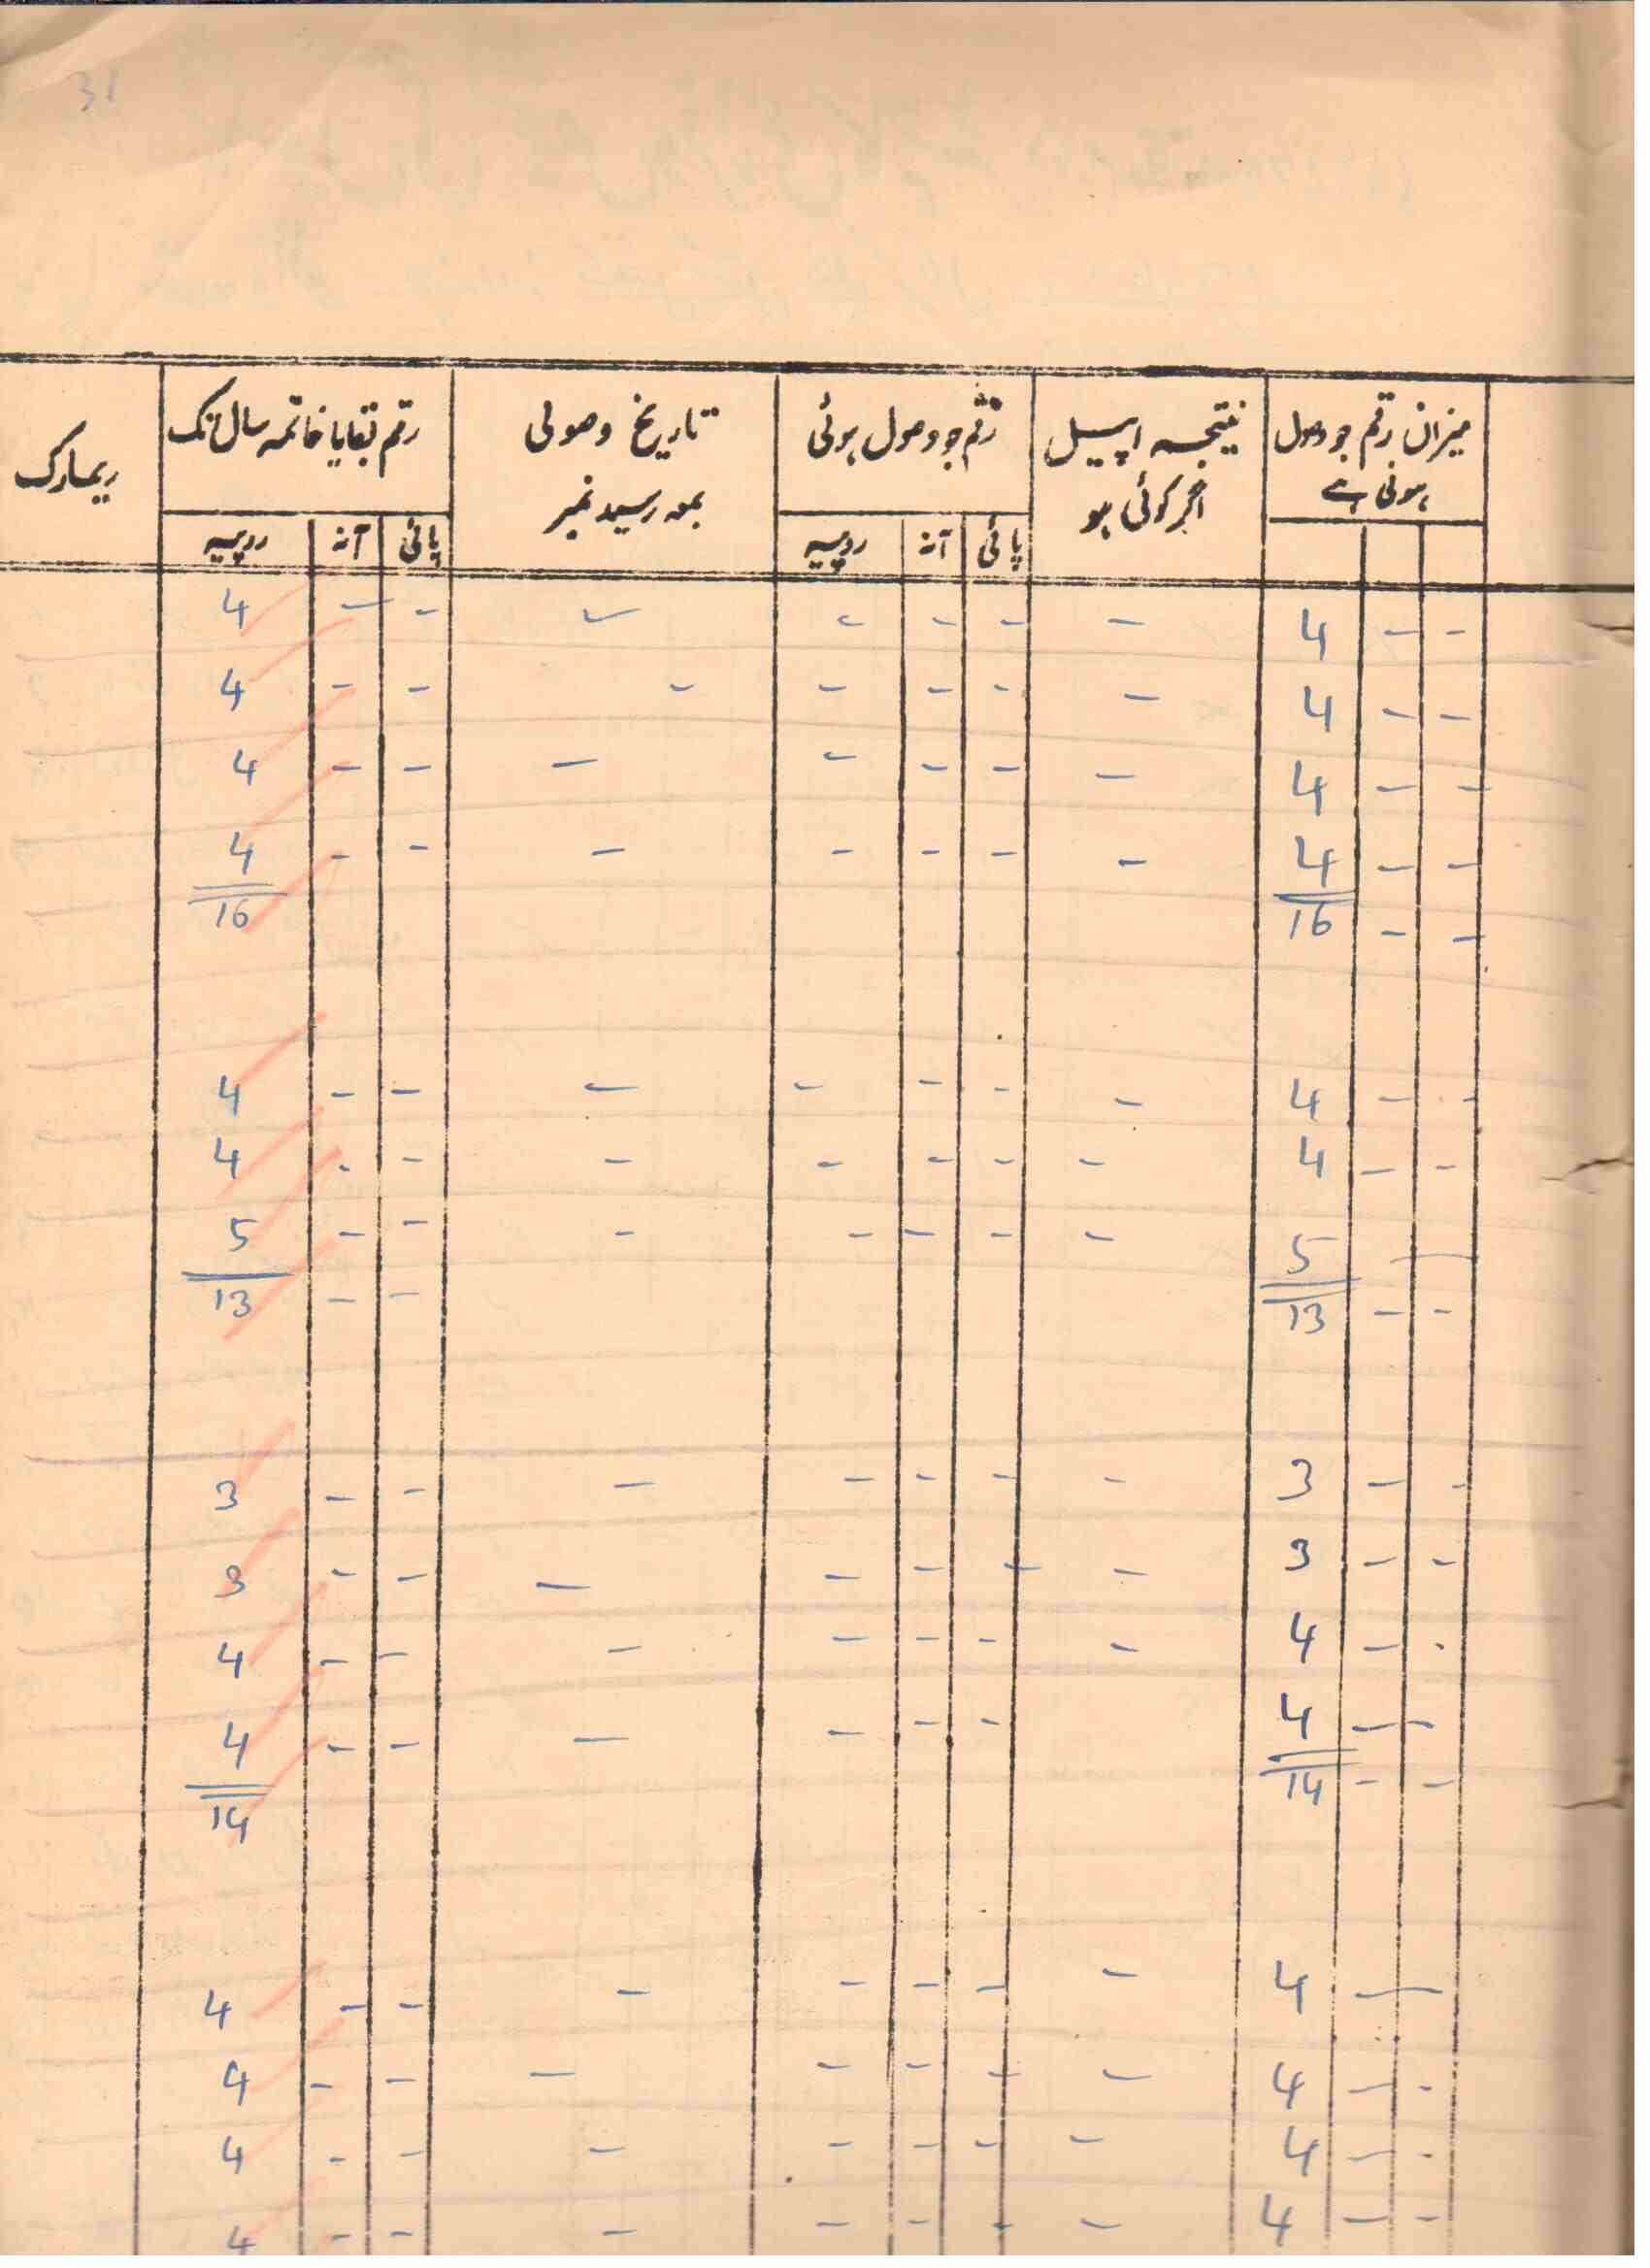 31
میزان رقم جو وصول ہونی ہے | نتیجہ اپیل اگر کوئی ہو | رقم جو وصول ہوئی | تاریخ وصولی بمعہ رسید نمبر | رقم بقایا خاتمہ سال تک | ریمارک
پائی | آنہ | روپیہ | پائی | آنہ | روپیہ
- | - | 4 | - | - | - | - | - | - | - | 4
- | - | 4 | - | - | - | - | - | - | - | 4
- | - | 4 | - | - | - | - | - | - | - | 4
- | - | 4 | - | - | - | - | - | - | - | 4
- | - | 16 | 16
- | - | 4 | - | - | - | - | - | - | - | 4
- | - | 4 | - | - | - | - | - | - | - | 4
— | 5 | - | - | - | - | - | - | - | 5
- | - | 13 | - | - | 13
- | - | 3 | - | - | - | - | - | - | - | 3
- | - | 3 | - | - | - | - | - | - | - | 3
- | - | 4 | - | - | - | - | - | - | - | 4
- | - | 4 | - | - | - | - | - | - | 4
- | - | 14 | 14
— | 4 | - | - | - | - | - | - | - | 4
- | - | 4 | - | - | - | - | - | - | - | 4
- | - | 4 | - | - | - | - | - | - | - | 4
- | - | 4 | - | - | - | - | - | - | - | 4